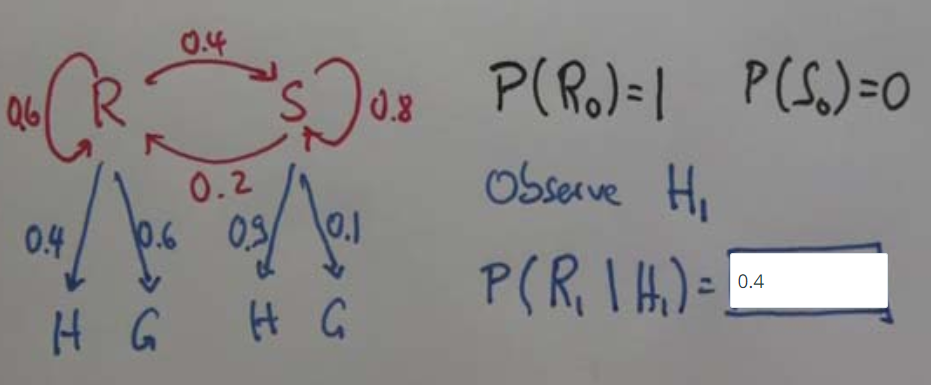 0.4
0.6 R S 0.8
0.2
0.4 0.6 0.9 0.1
H G H G
P(R₀)=1 P(S₀)=0
Observe H₁
P(R₁|H₁)= 0.4